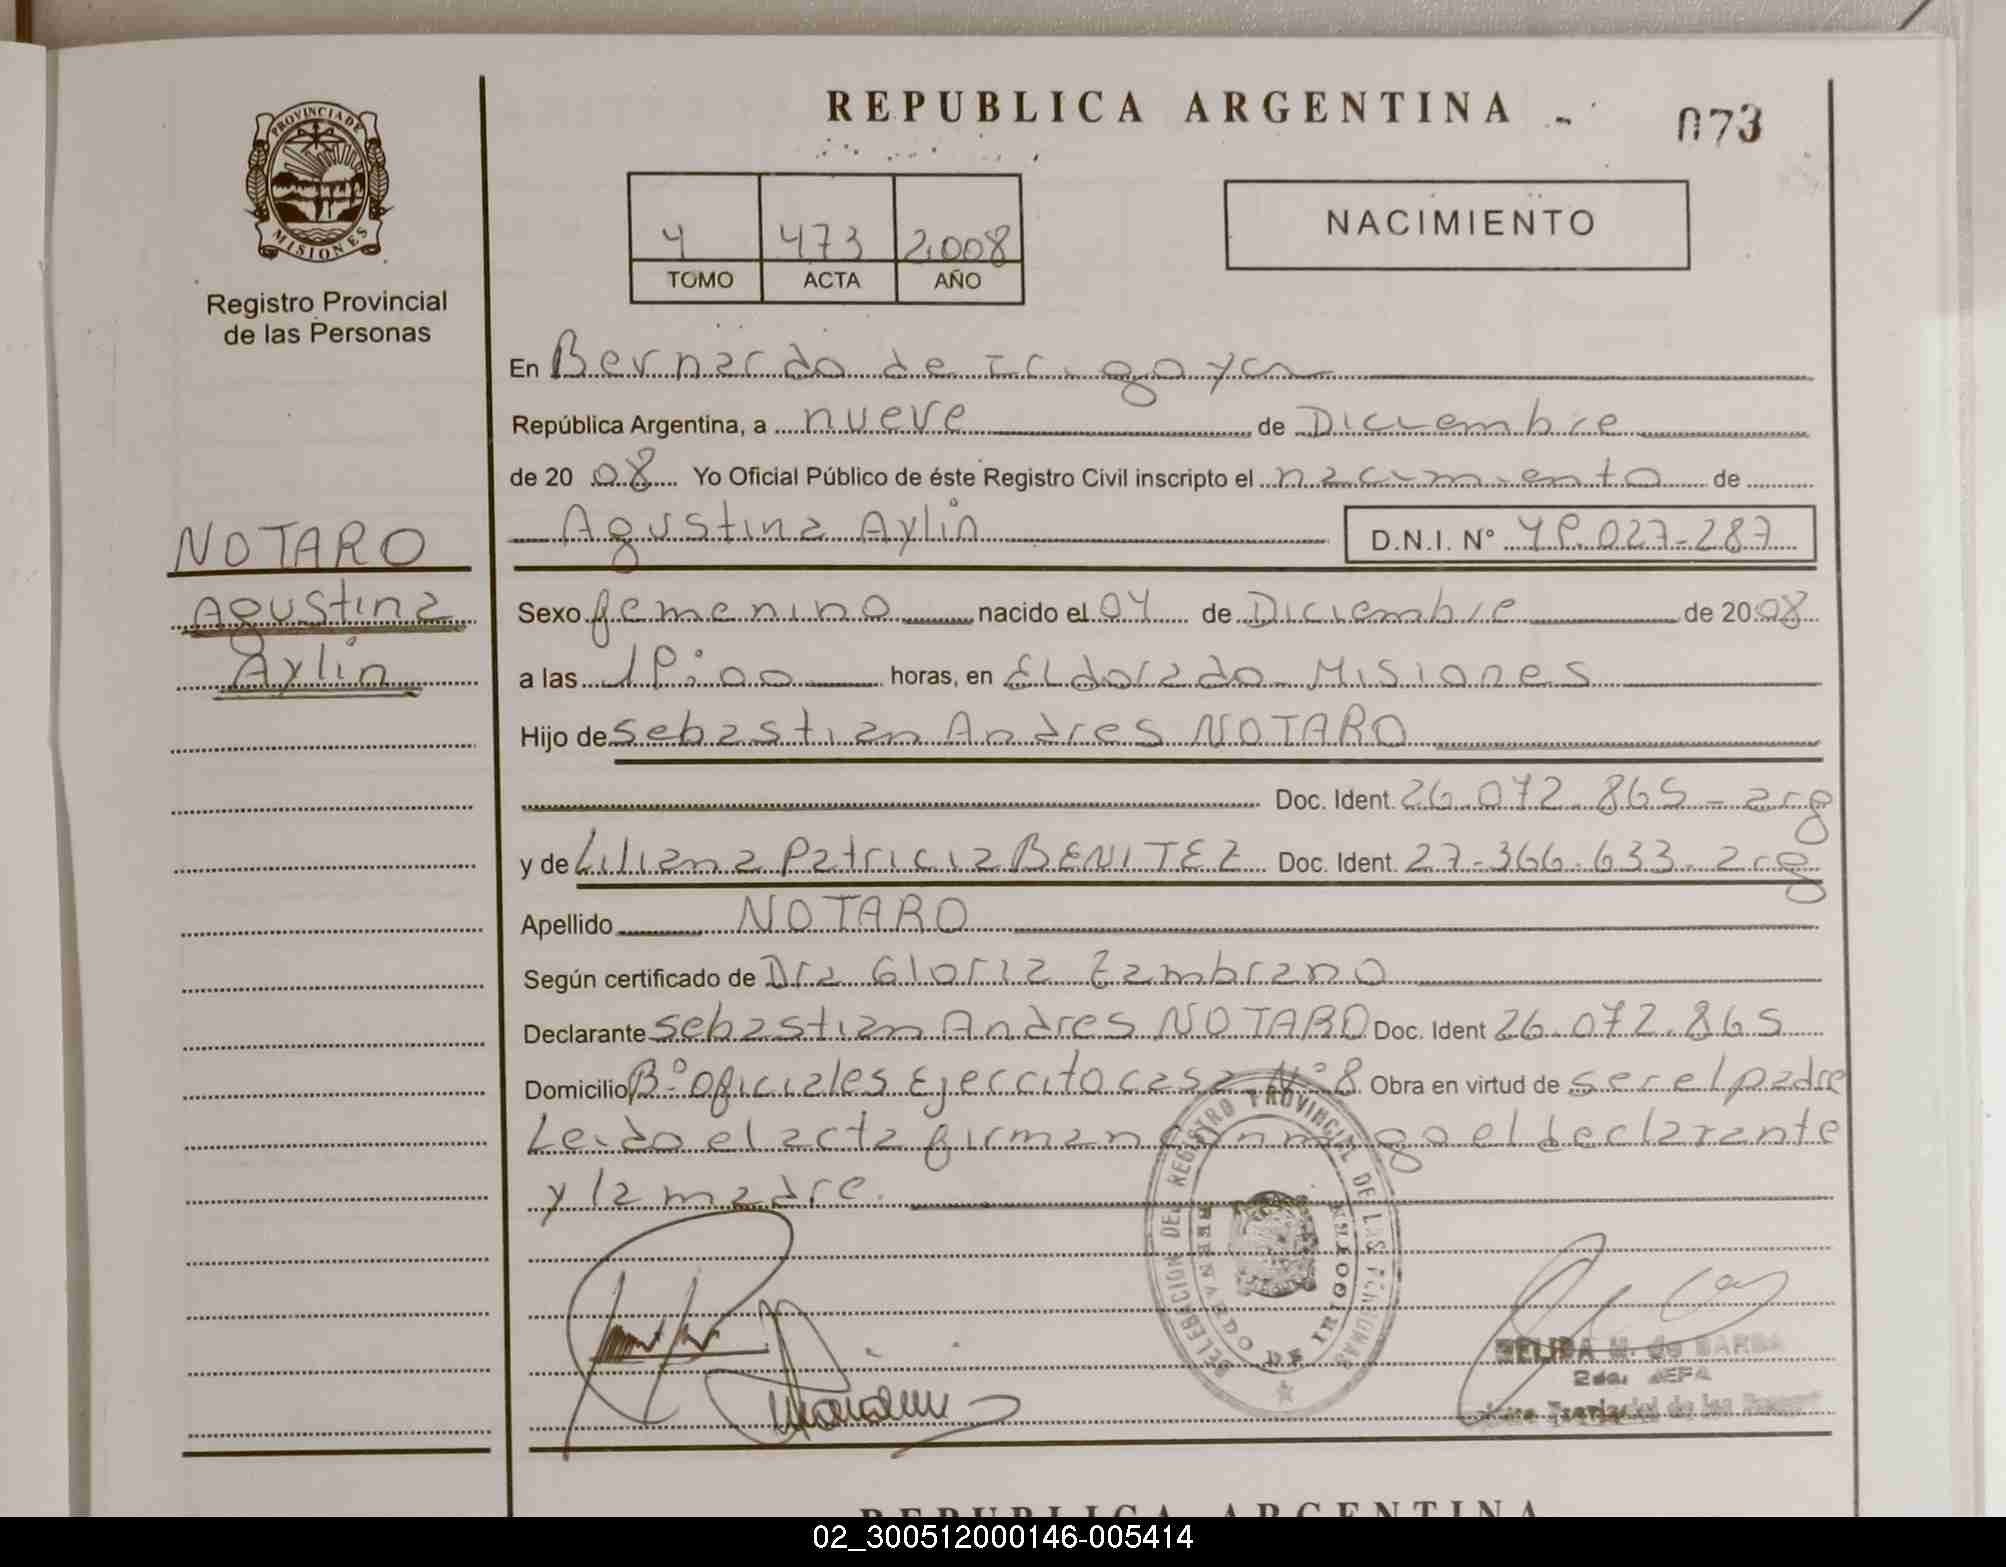 REPUBLICA ARGENTINA
073
PROVINCIA DE
MISIONES
Registro Provincial
de las Personas
4 473 2.008
TOMO ACTA AÑO
NACIMIENTO
En Bernardo de Irigoyen
República Argentina, a nueve de Diciembre
de 20 08 Yo Oficial Público de éste Registro Civil inscripto el nacimiento de
Agustina Aylin D.N.I. N° 49.027-287
NOTARO
Agustina
Aylin
Sexo femenino nacido el 04 de Diciembre de 20 08
a las 19:00 horas, en Eldorado Misiones
Hijo de Sebastian Andres NOTARO
Doc. Ident. 26.072.865 - arg
y de Liliana Patricia BENITEZ Doc. Ident. 27-366.633 - arg
Apellido NOTARO
Según certificado de Dra Gloria Zambrano
Declarante Sebastian Andres NOTARO Doc. Ident 26.072.865
Domicilio B° Oficiales Ejercito casa N° 8 Obra en virtud de ser el padre
Leido el acta firman conmigo el declarante
y la madre.
DELEGACION DEL REGISTRO PROVINCIAL DE LAS PERSONAS
BERNARDO DE IRIGOYEN
de BARBA
2da. JEFA
de las
REPUBLICA ARGENTINA
02_300512000146-005414